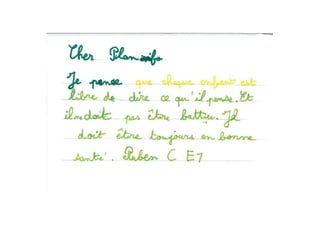 Cher Plan
Je pense que chaque enfant est
libre de dire ce qu'il pense. Et
il ne doit pas être battu. Il
doit être toujours en bonne
santé. Ruben C E7